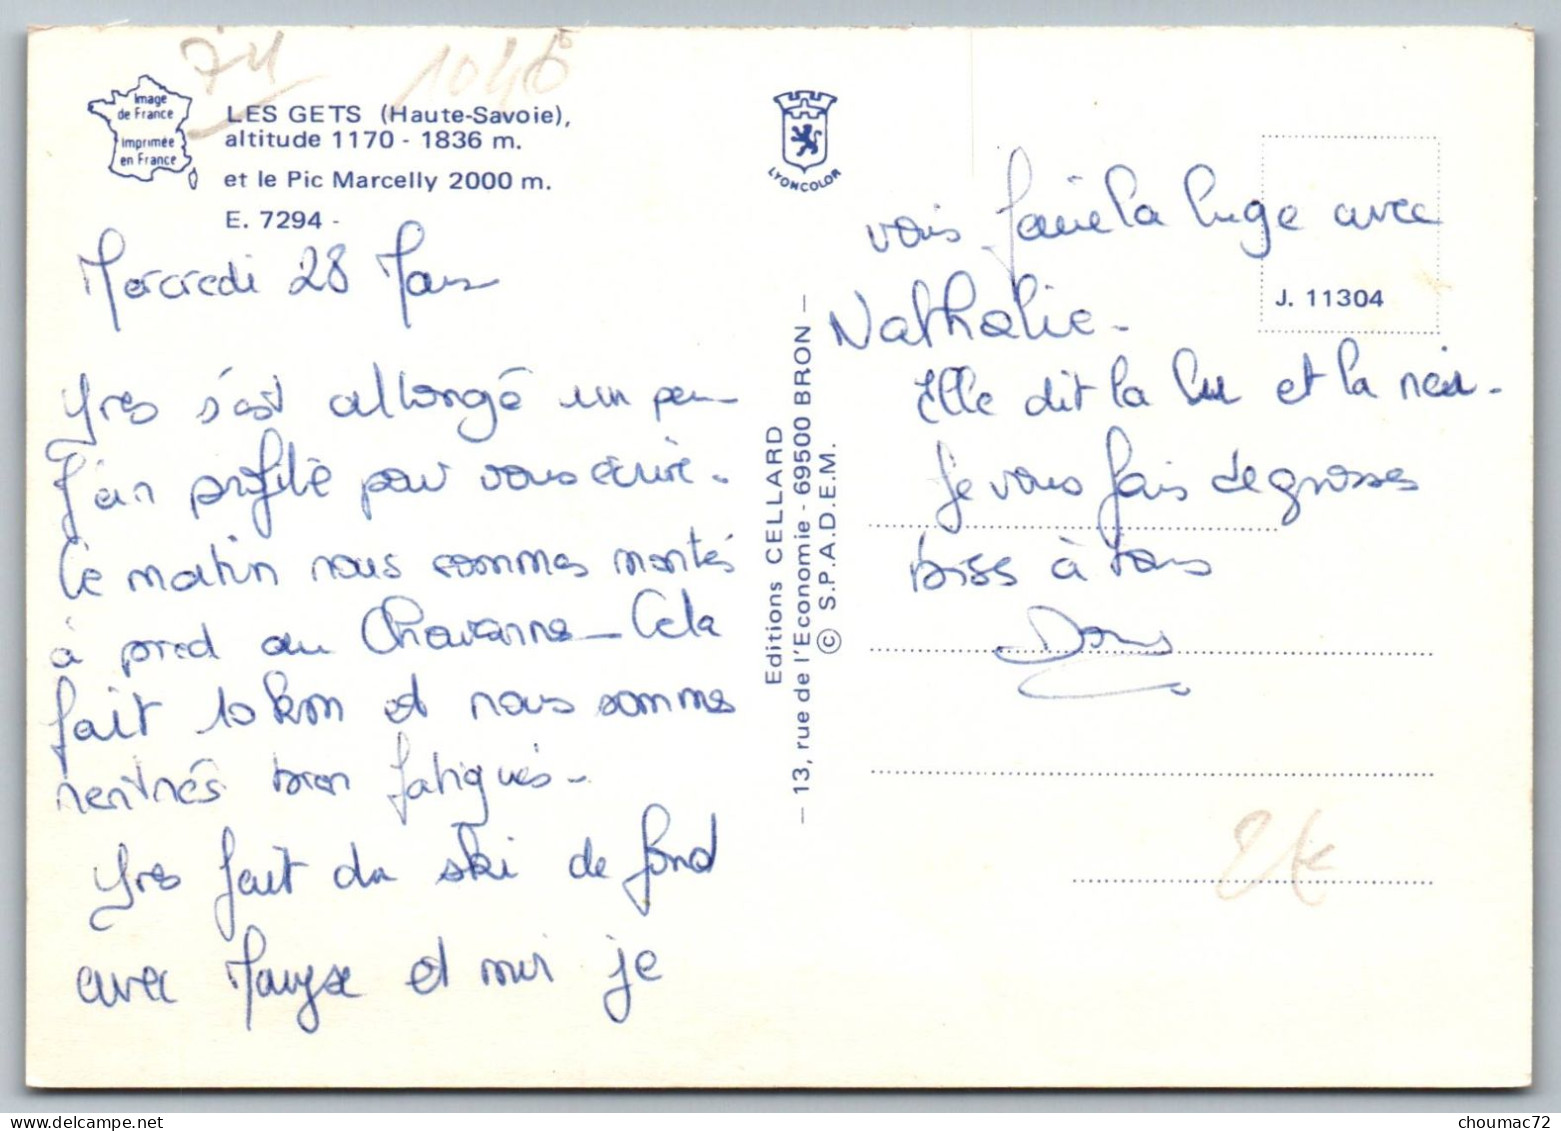 74
1046
Image
de France
imprimée
en France
LES GETS (Haute-Savoie),
altitude 1170 - 1836 m.
et le Pic Marcelly 2000 m.
E. 7294 -
Mercredi 28 Mars
Yves s'est allongé un peu
J'en profite pour vous écrire.
Ce matin nous sommes montés
à pied au Chavanne - Cela
fait 10 km et nous sommes
rentrés bien fatigués -
Yves fait du ski de fond
avec Maryse et moi je
LYONCOLOR
Editions CELLARD
— 13, rue de l'Economie - 69500 BRON —
© S.P.A.D.E.M.
J. 11304
vais faire la luge avec
Nathalie -
Elle dit la lu et la nei -
Je vous fais de grosses
bises à tous
2€
choumac72